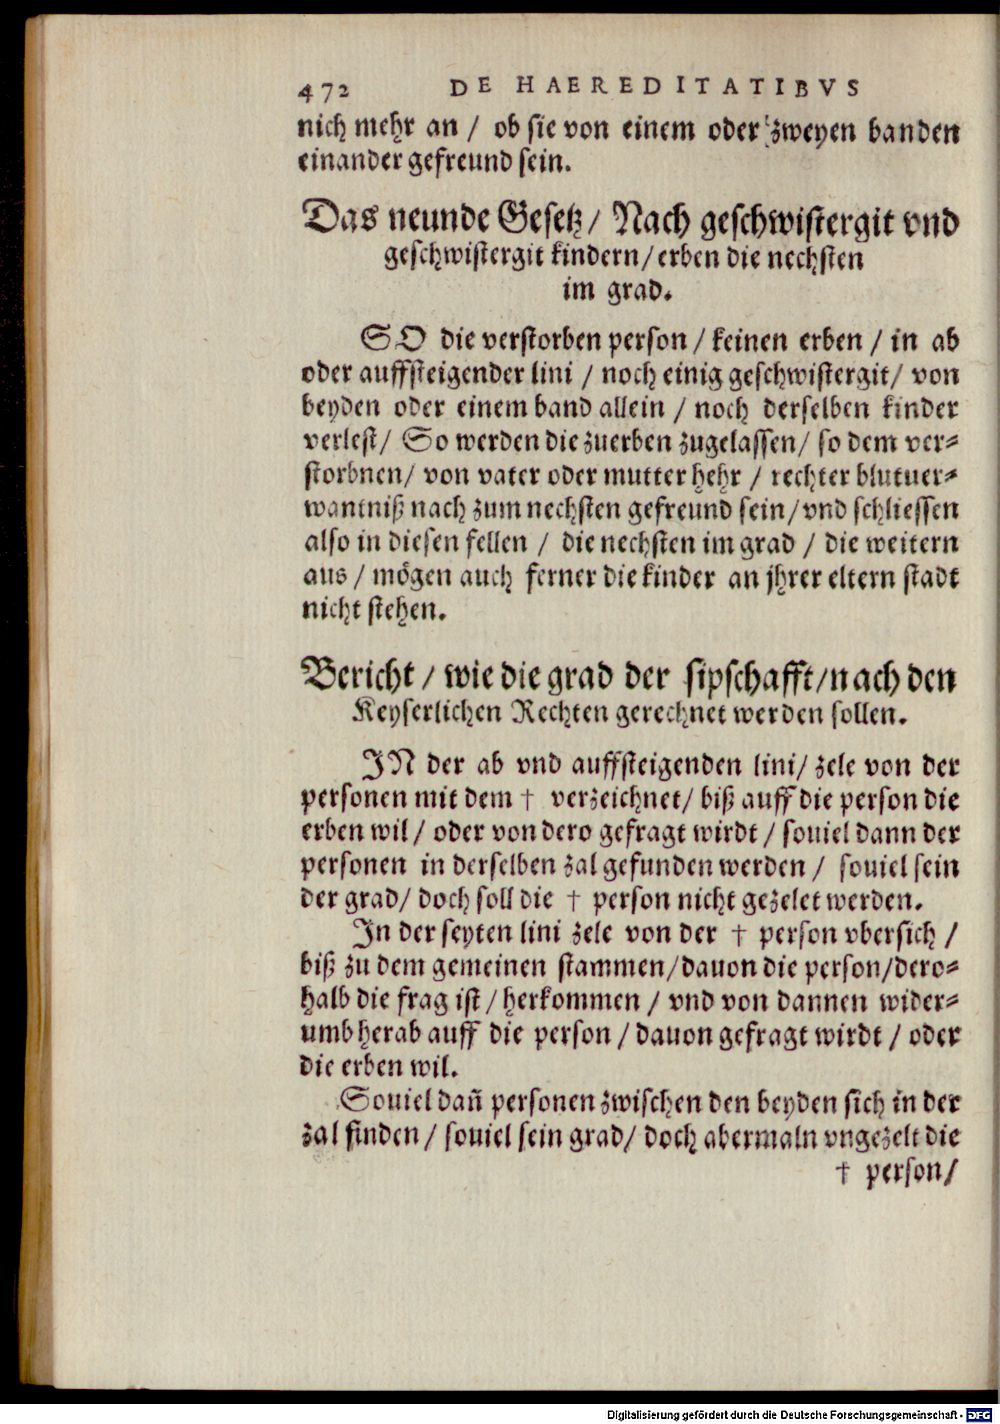 472 DE HAEREDITATIBVS
nich mehr an / ob sie von einem oder zweyen banden
einander gefreund sein.
Das neunde Gesetz / Nach geschwistergit vnd
geschwistergit kindern / erben die nechsten
im grad.
SO die verstorben person / keinen erben / in ab
oder auffsteigender lini / noch einig geschwistergit / von
beyden oder einem band allein / noch derselben kinder
verlest / So werden die zuerben zugelassen / so dem ver⸗
storbnen / von vater oder mutter hehr / rechter blutuer⸗
wantniß nach zum nechsten gefreund sein / vnd schliessen
also in diesen fellen / die nechsten im grad / die weitern
aus / mögen auch ferner die kinder an jhrer eltern stadt
nicht stehen.
Bericht / wie die grad der sipschafft / nach den
Keyserlichen Rechten gerechnet werden sollen.
IN der ab vnd auffsteigenden lini / zele von der
personen mit dem † verzeichnet / biß auff die person die
erben wil / oder von dero gefragt wirdt / souiel dann der
personen in derselben zal gefunden werden / souiel sein
der grad / doch soll die † person nicht gezelet werden.
In der seyten lini zele von der † person vbersich /
biß zu dem gemeinen stammen / dauon die person / dero⸗
halb die frag ist / herkommen / vnd von dannen wider⸗
umb herab auff die person / dauon gefragt wirdt / oder
die erben wil.
Souiel dañ personen zwischen den beyden sich in der
zal finden / souiel sein grad / doch abermaln vngezelt die
† person /
Digitalisierung gefördert durch die Deutsche Forschungsgemeinschaft - DFG